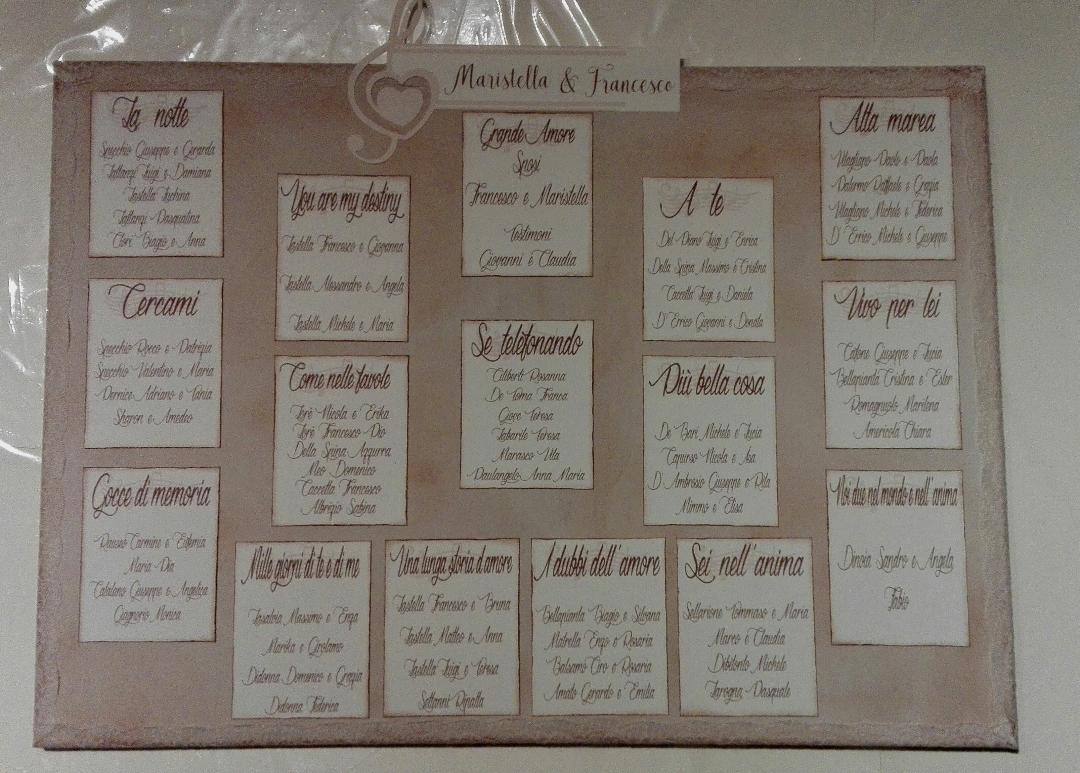 Maristella & Francesco
La notte
Specchio Giuseppe e Gerarda
Luigi e Damiana
Pasqualina
Clori Biagio e Anna
Cercami
Specchio Rocco e Patrizia
Specchio Valentino e Maria
Pernice Adriano e Tania
Sharon e Amedeo
Gocce di memoria
Carmine e Estemia
Maria Pia
Catalano Giuseppe e Angelica
Monica
You are my destiny
Tastella Francesco e Giovanna
Tastella Alessandro e Angela
Tastella Michele e Maria
Come nelle favole
Lorè Nicola e Erika
Lorè Francesco Pio
Della Spina Azzurra
Meo Domenico
Caccetta Francesco
Albrizio Sabina
Mille giorni di te e di me
Massimo e Enza
Mariola e Girolamo
Didonna Domenico e Grazia
Didonna Federica
Grande Amore
Sposi
Francesco e Maristella
Testimoni
Giovanni e Claudia
Se telefonando
Ciliberti Rosanna
De Toma Franca
Gioce Teresa
Tabarile Teresa
Marasco Vita
Paulangelo Anna Maria
Una lunga storia d'amore
Tastella Francesco e Bruna
Tastella Matteo e Anna
Tastella Luigi e Teresa
Settanni
I dubbi dell'amore
Bellapianta Biagio e Silvana
Matrella Enzo e Rosaria
Balsamo Ciro e Rosaria
Amato Gerardo e Emilia
A te
Del Piano Luigi e Enrica
Della Spina Massimo e Cristina
Caccetta Luigi e Daniela
D'Errico Giovanni e Donata
Più bella cosa
De Bari Michele e Lucia
Capurso Nicola e Isa
D'Ambrosio Giuseppe e Rita
Mimmo e Elisa
Sei nell'anima
Sellarione Tommaso e Maria
Marco e Claudia
Debitonto Michele
Tarogna Pasquale
Alta marea
Vitagliano Paolo e Paola
Palermo Raffaele e Grazia
Vitagliano Michele e Federica
D'Errico Michele e Giuseppe
Vivo per lei
Cafone Giuseppe e Lucia
Bellapianta Cristina e Ester
Romagnuolo Marilena
Americola Chiara
Noi due nel mondo e nell'anima
Dinoia Sandro e Angela
Fabio